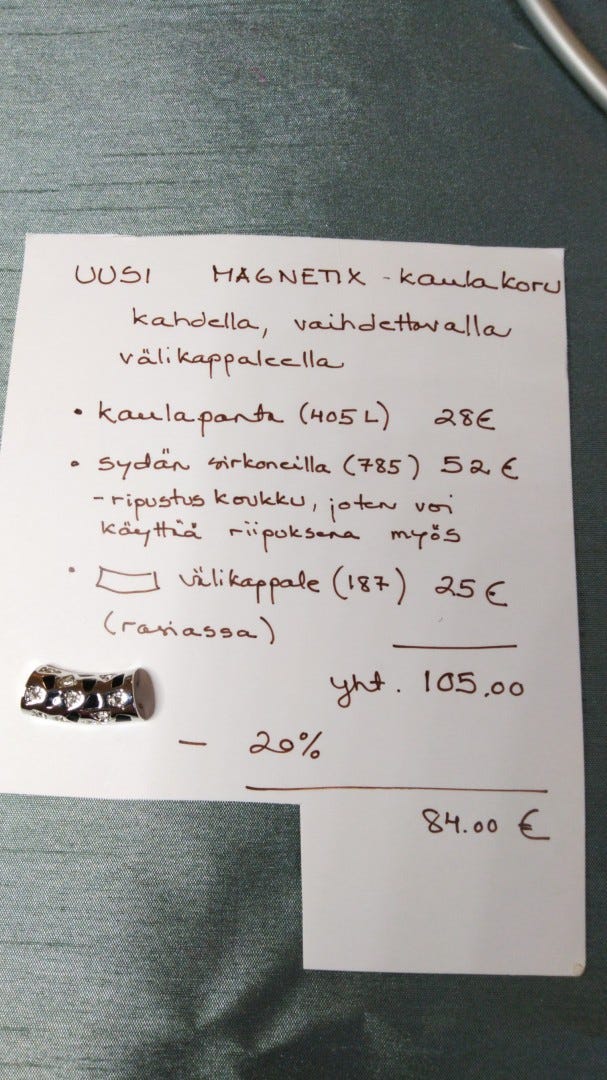 UUSI MAGNETIX - kaulakoru
kahdella, vaihdettavalla
välikappaleella
• kaulapanta (405 L) 28€
• sydän sirkoneilla (785) 52 €
- ripustus koukku, joten voi
käyttää riipuksena myös
• välikappale (187) 25 €
(rasiassa)
yht. 105.00
- 20%
84.00 €